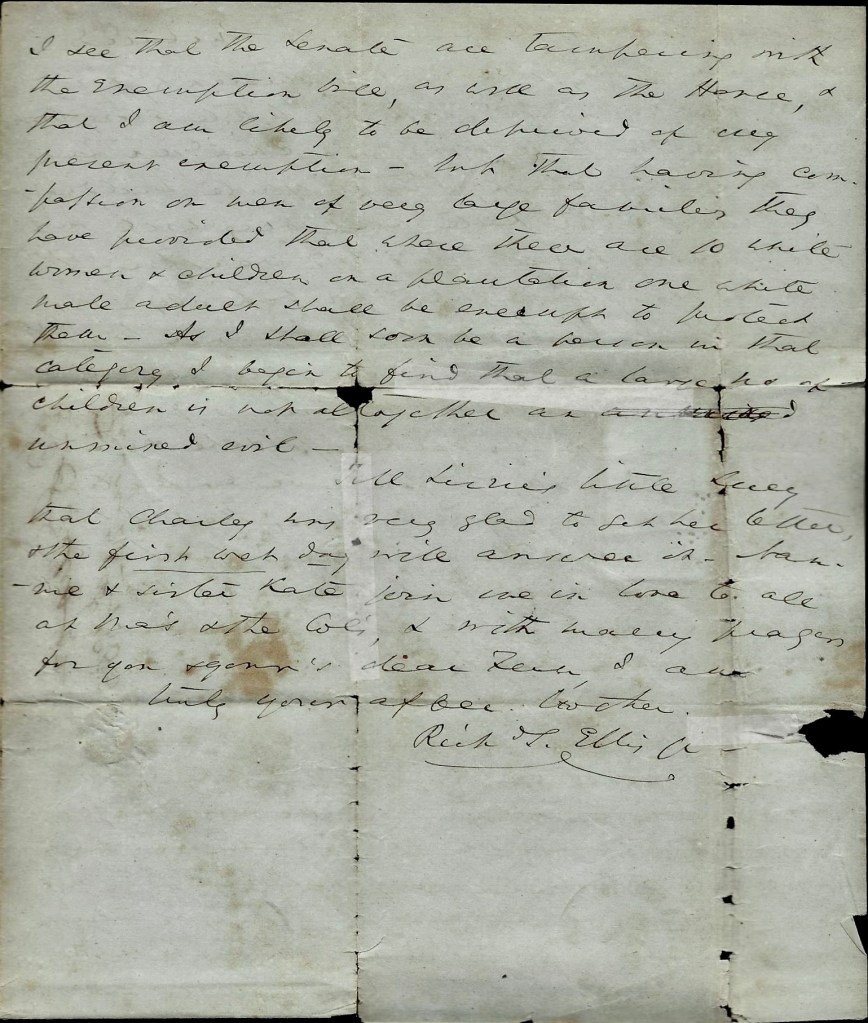 I see that the Senate are tampering with
the Exemption bill, as well as the House, &
that I am likely to be deprived of my
present exemption – but that having com-
-passion on men of very large families they
have provided that where there are 10 white
women & children on a plantation one white
male adult shall be exempt to protect
them – As I shall soon be a person in that
category, I begin to find that a large no of
children is not altogether an
unmixed evil –
Tell Lizzie's little Lucy
that Charley was very glad to get her letter,
& the first wet day will answer it – Nan-
-nie & sister Kate join me in love to all
at Ma's & the Col's, & with many prayers
for you & yours dear I am
truly yours affec. brother.
Rich d S. Ellis Jr –